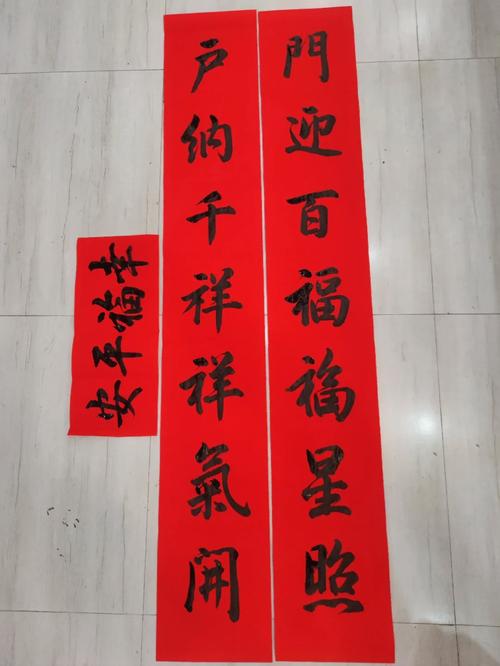 門迎百福福星照
户納千祥祥氣開
幸福平安